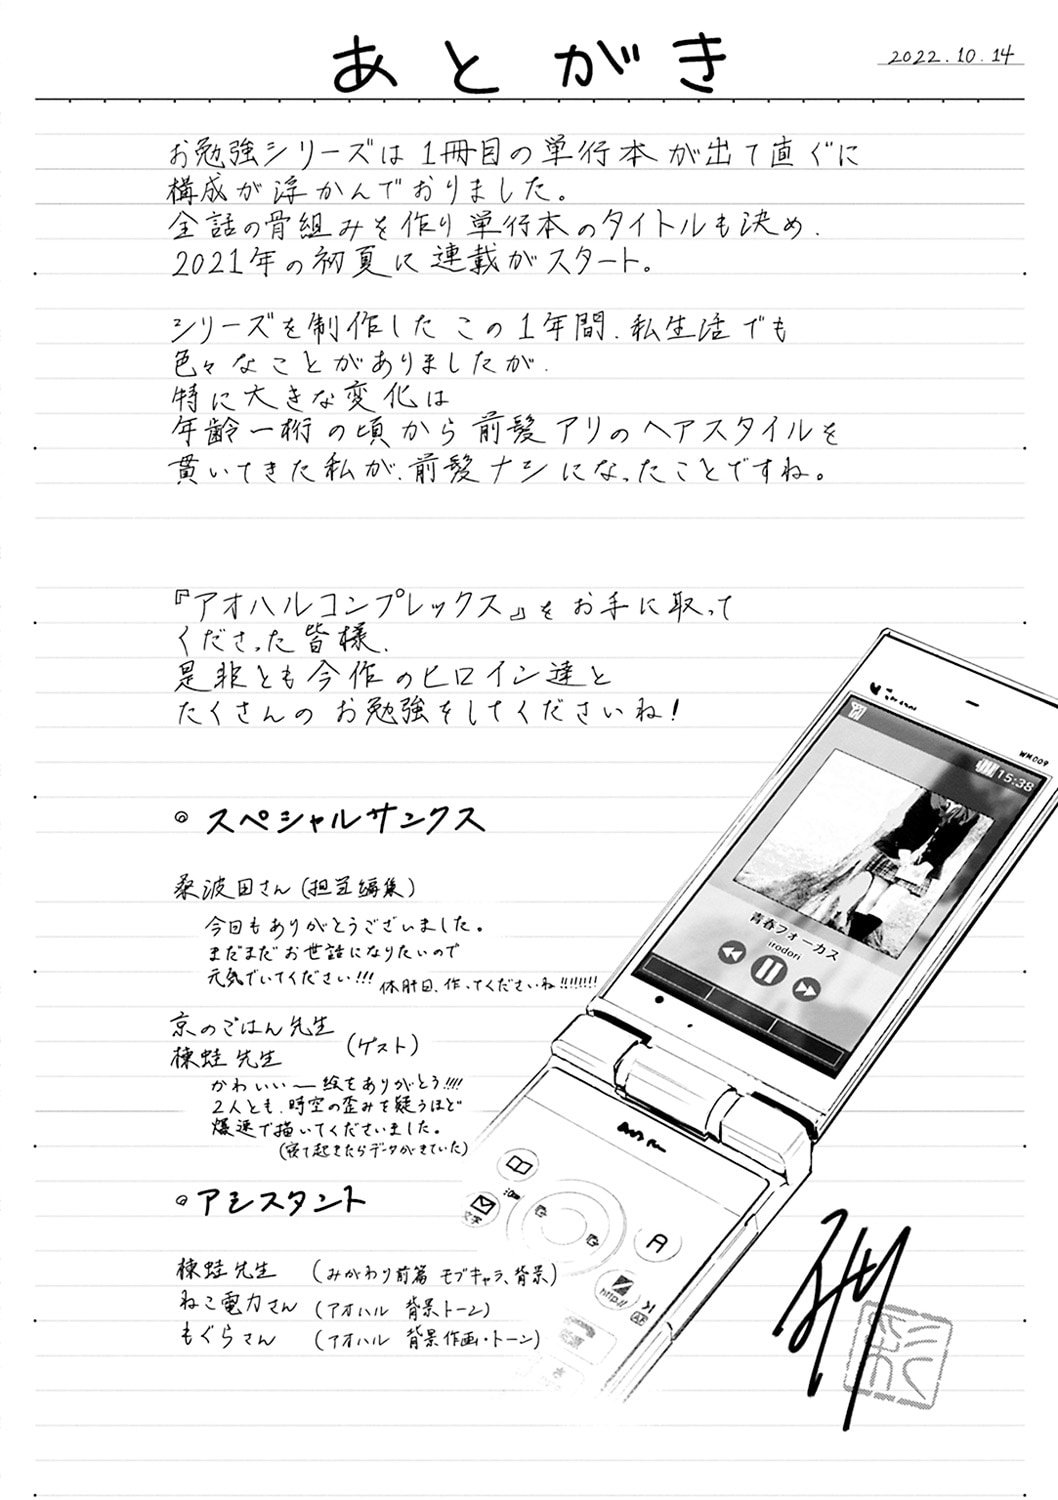 あとがき
2022.10.14
お勉強シリーズは1冊目の単行本が出て直ぐに
構成が浮かんでおりました。
全話の骨組みを作り単行本のタイトルも決め、
2021年の初夏に連載がスタート。
シリーズを制作したこの1年間、私生活でも
色々なことがありましたが、
特に大きな変化は
年齢一桁の頃から前髪アリのヘアスタイルを
貫いてきた私が、前髪ナシになったことですね。
『アオハルコンプレックス』をお手に取って
くださった皆様、
是非とも今作のヒロイン達と
たくさんのお勉強をしてくださいね!
◎スペシャルサンクス
桑波田さん(担当編集)
今回もありがとうございました。
まだまだお世話になりたいので
元気でいてください!!!
休肝日、作ってくださいね!!!!!!!!
京のごはん先生
棟蛙先生
(ゲスト)
かわいい〜絵をありがとう!!!!
2人とも、時空の歪みを疑うほど
爆速で描いてくださいました。
(寝て起きたらデータがきていた)
◎アシスタント
棟蛙先生 (みがわり前篇 モブキャラ、背景)
ねこ電力さん (アオハル 背景トーン)
もぐらさん (アオハル 背景作画・トーン)
WM009
15:38
青春フォーカス
irodori
文字
A
http://